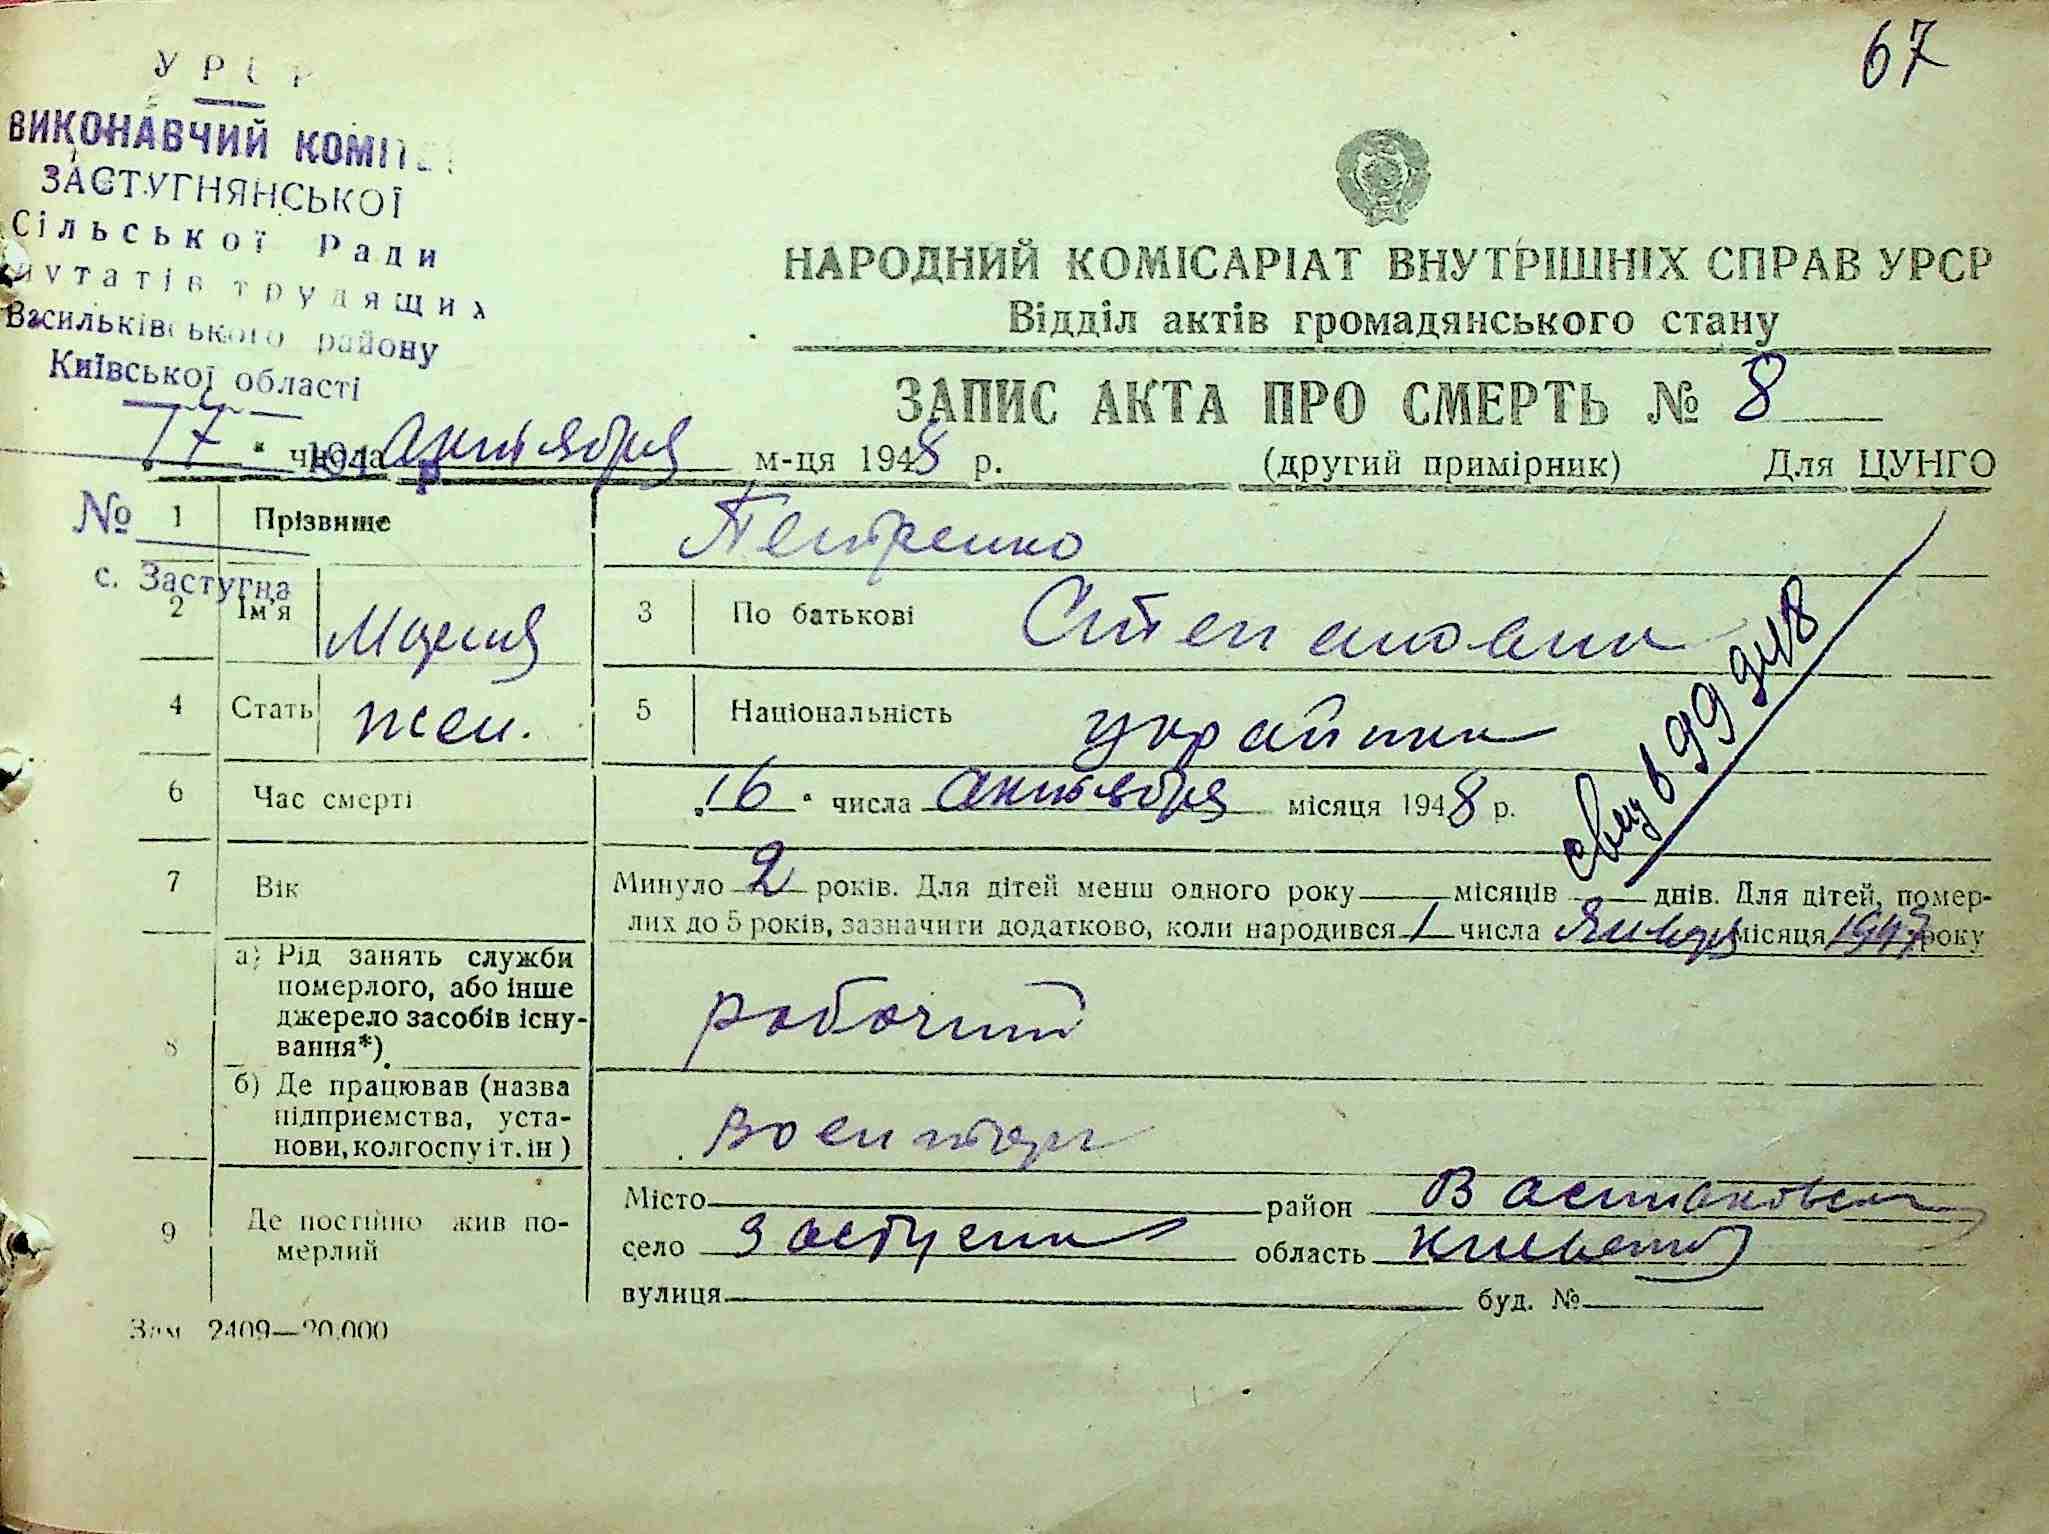 67
УРСР
ВИКОНАВЧИЙ КОМІТЕ
ЗАСТУГНЯНСЬКОЇ
Сільської Ради
путатів трудящих
Васильківського району
Київської області
НАРОДНИЙ КОМІСАРІАТ ВНУТРІШНІХ СПРАВ УРСР
Відділ актів громадянського стану
ЗАПИС АКТА ПРО СМЕРТЬ № 8
17 " числа октября м-ця 1948 р. (другий примірник) Для ЦУНГО
194 р
№
с. Застугна
1 Прізвище Петренко
2 Ім'я Мария 3 По батькові Степановна
4 Стать жен. 5 Національність украинка
6 Час смерті „16" числа октября місяця 1948 р.
7 Вік Минуло 2 років. Для дітей менш одного року місяців днів. Для дітей, помер-
лих до 5 років, зазначити додатково, коли народився 1 числа Января місяця 1947 року
8 а) Рід занять служби
померлого, або інше
джерело засобів існу-
вання*)
рабочий
б) Де працював (назва
підприємства, уста-
нови, колгоспу і т. ін)
военторг
9 Де постійно жив по-
мерлий
Місто район Васильковский
село Застугна область Киевская
вулиця буд. №
Зам 2409—20.000